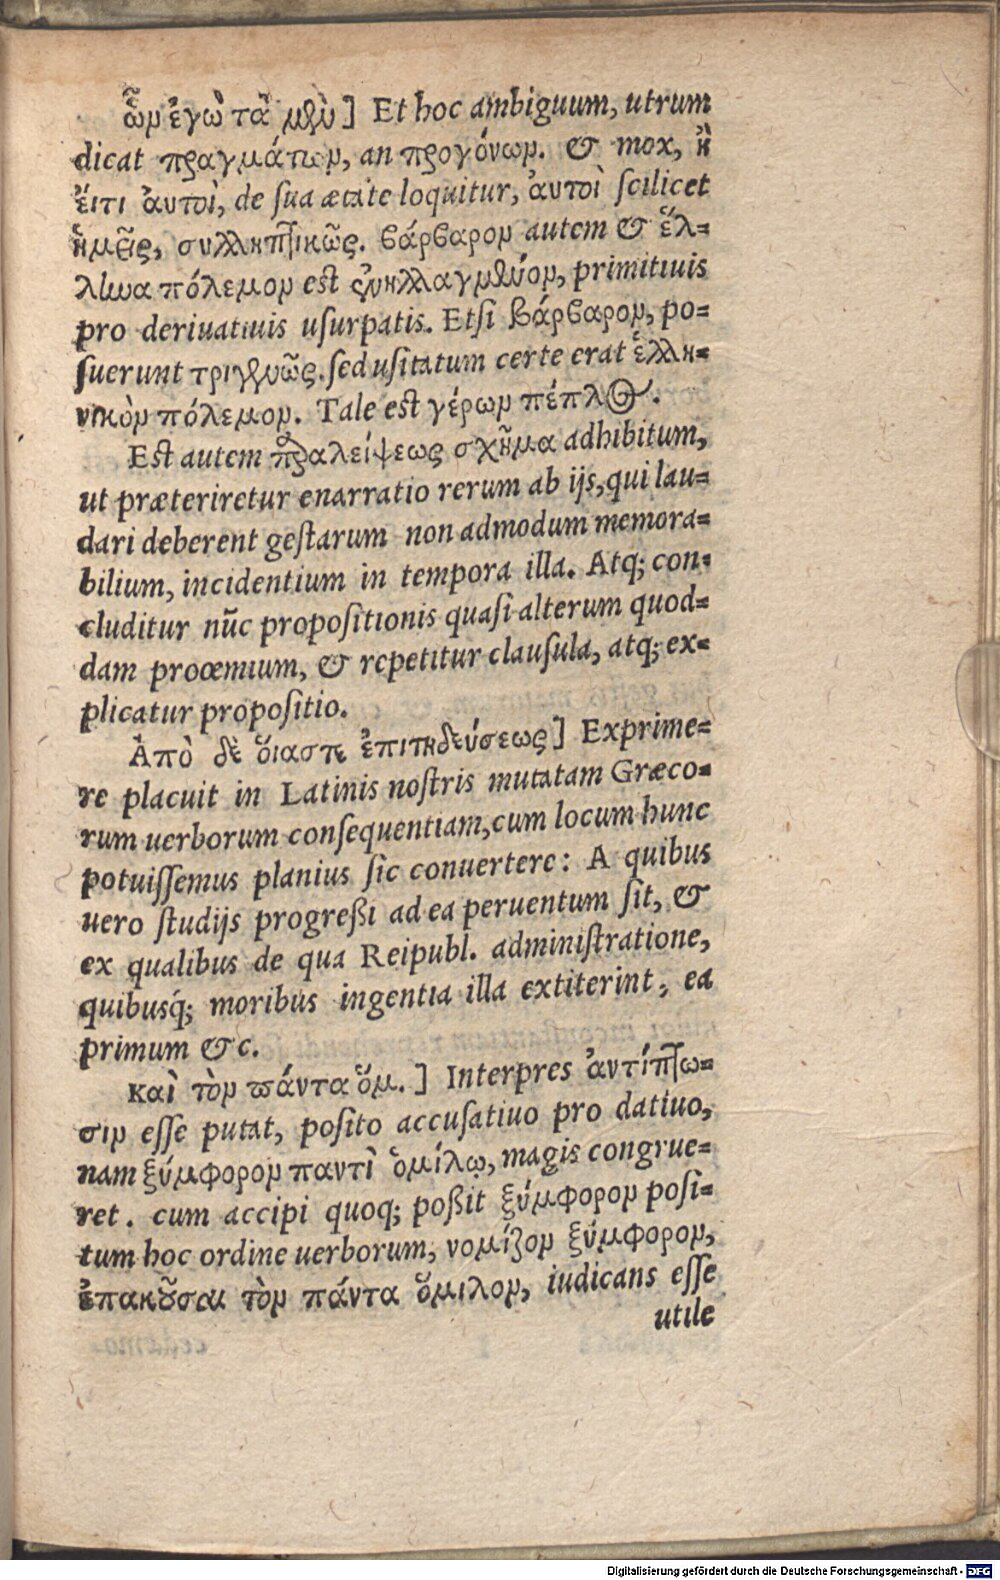 ὧν ἐγὼ τὰ μὲν] Et hoc ambiguum, utrum
dicat πραγμάτων, an προγόνων. & mox, ἢ
ἔιτι ἀυτοὶ, de sua ætate loquitur, ἀυτοὶ scilicet
ἡμεῖς, συλληπτικῶς. βάρβαρον autem & ἕλ=
ληνα πόλεμον est ἐνηλλαγμένον, primitiuis
pro deriuatiuis usurpatis. Etsi βάρβαρον, po=
suerunt τριγενῶς. sed usitatum certe erat ἑλλη=
νικὸν πόλεμον. Tale est γέρων πέπλος.
Est autem παραλείψεως σχῆμα adhibitum,
ut præteriretur enarratio rerum ab ijs, qui lau=
dari deberent gestarum non admodum memora=
bilium, incidentium in tempora illa. Atq; con=
cluditur nūc propositionis quasi alterum quod=
dam proœmium, & repetitur clausula, atq; ex=
plicatur propositio.
Ἀπὸ δὲ ὅιαστε ἐπιτηδεύσεως] Exprime=
re placuit in Latinis nostris mutatam Græco=
rum uerborum consequentiam, cum locum hunc
potuissemus planius sic conuertere: A quibus
uero studijs progreßi ad ea peruentum sit, &
ex qualibus de qua Reipubl. administratione,
quibusq́; moribus ingentia illa extiterint, ea
primum &c.
καὶ τὸν πάντα ὅμ.] Interpres ἀντίπτω=
σιν esse putat, posito accusatiuo pro datiuo,
nam ξύμφορον παντὶ ὁμίλῳ, magis congrue=
ret. cum accipi quoq; poßit ξύμφορον posi=
tum hoc ordine uerborum, νομίζον ξύμφορον,
ἐπακοῦσαι τὸν πάντα ὅμιλον, iudicans esse
utile
Digitalisierung gefördert durch die Deutsche Forschungsgemeinschaft - DFG